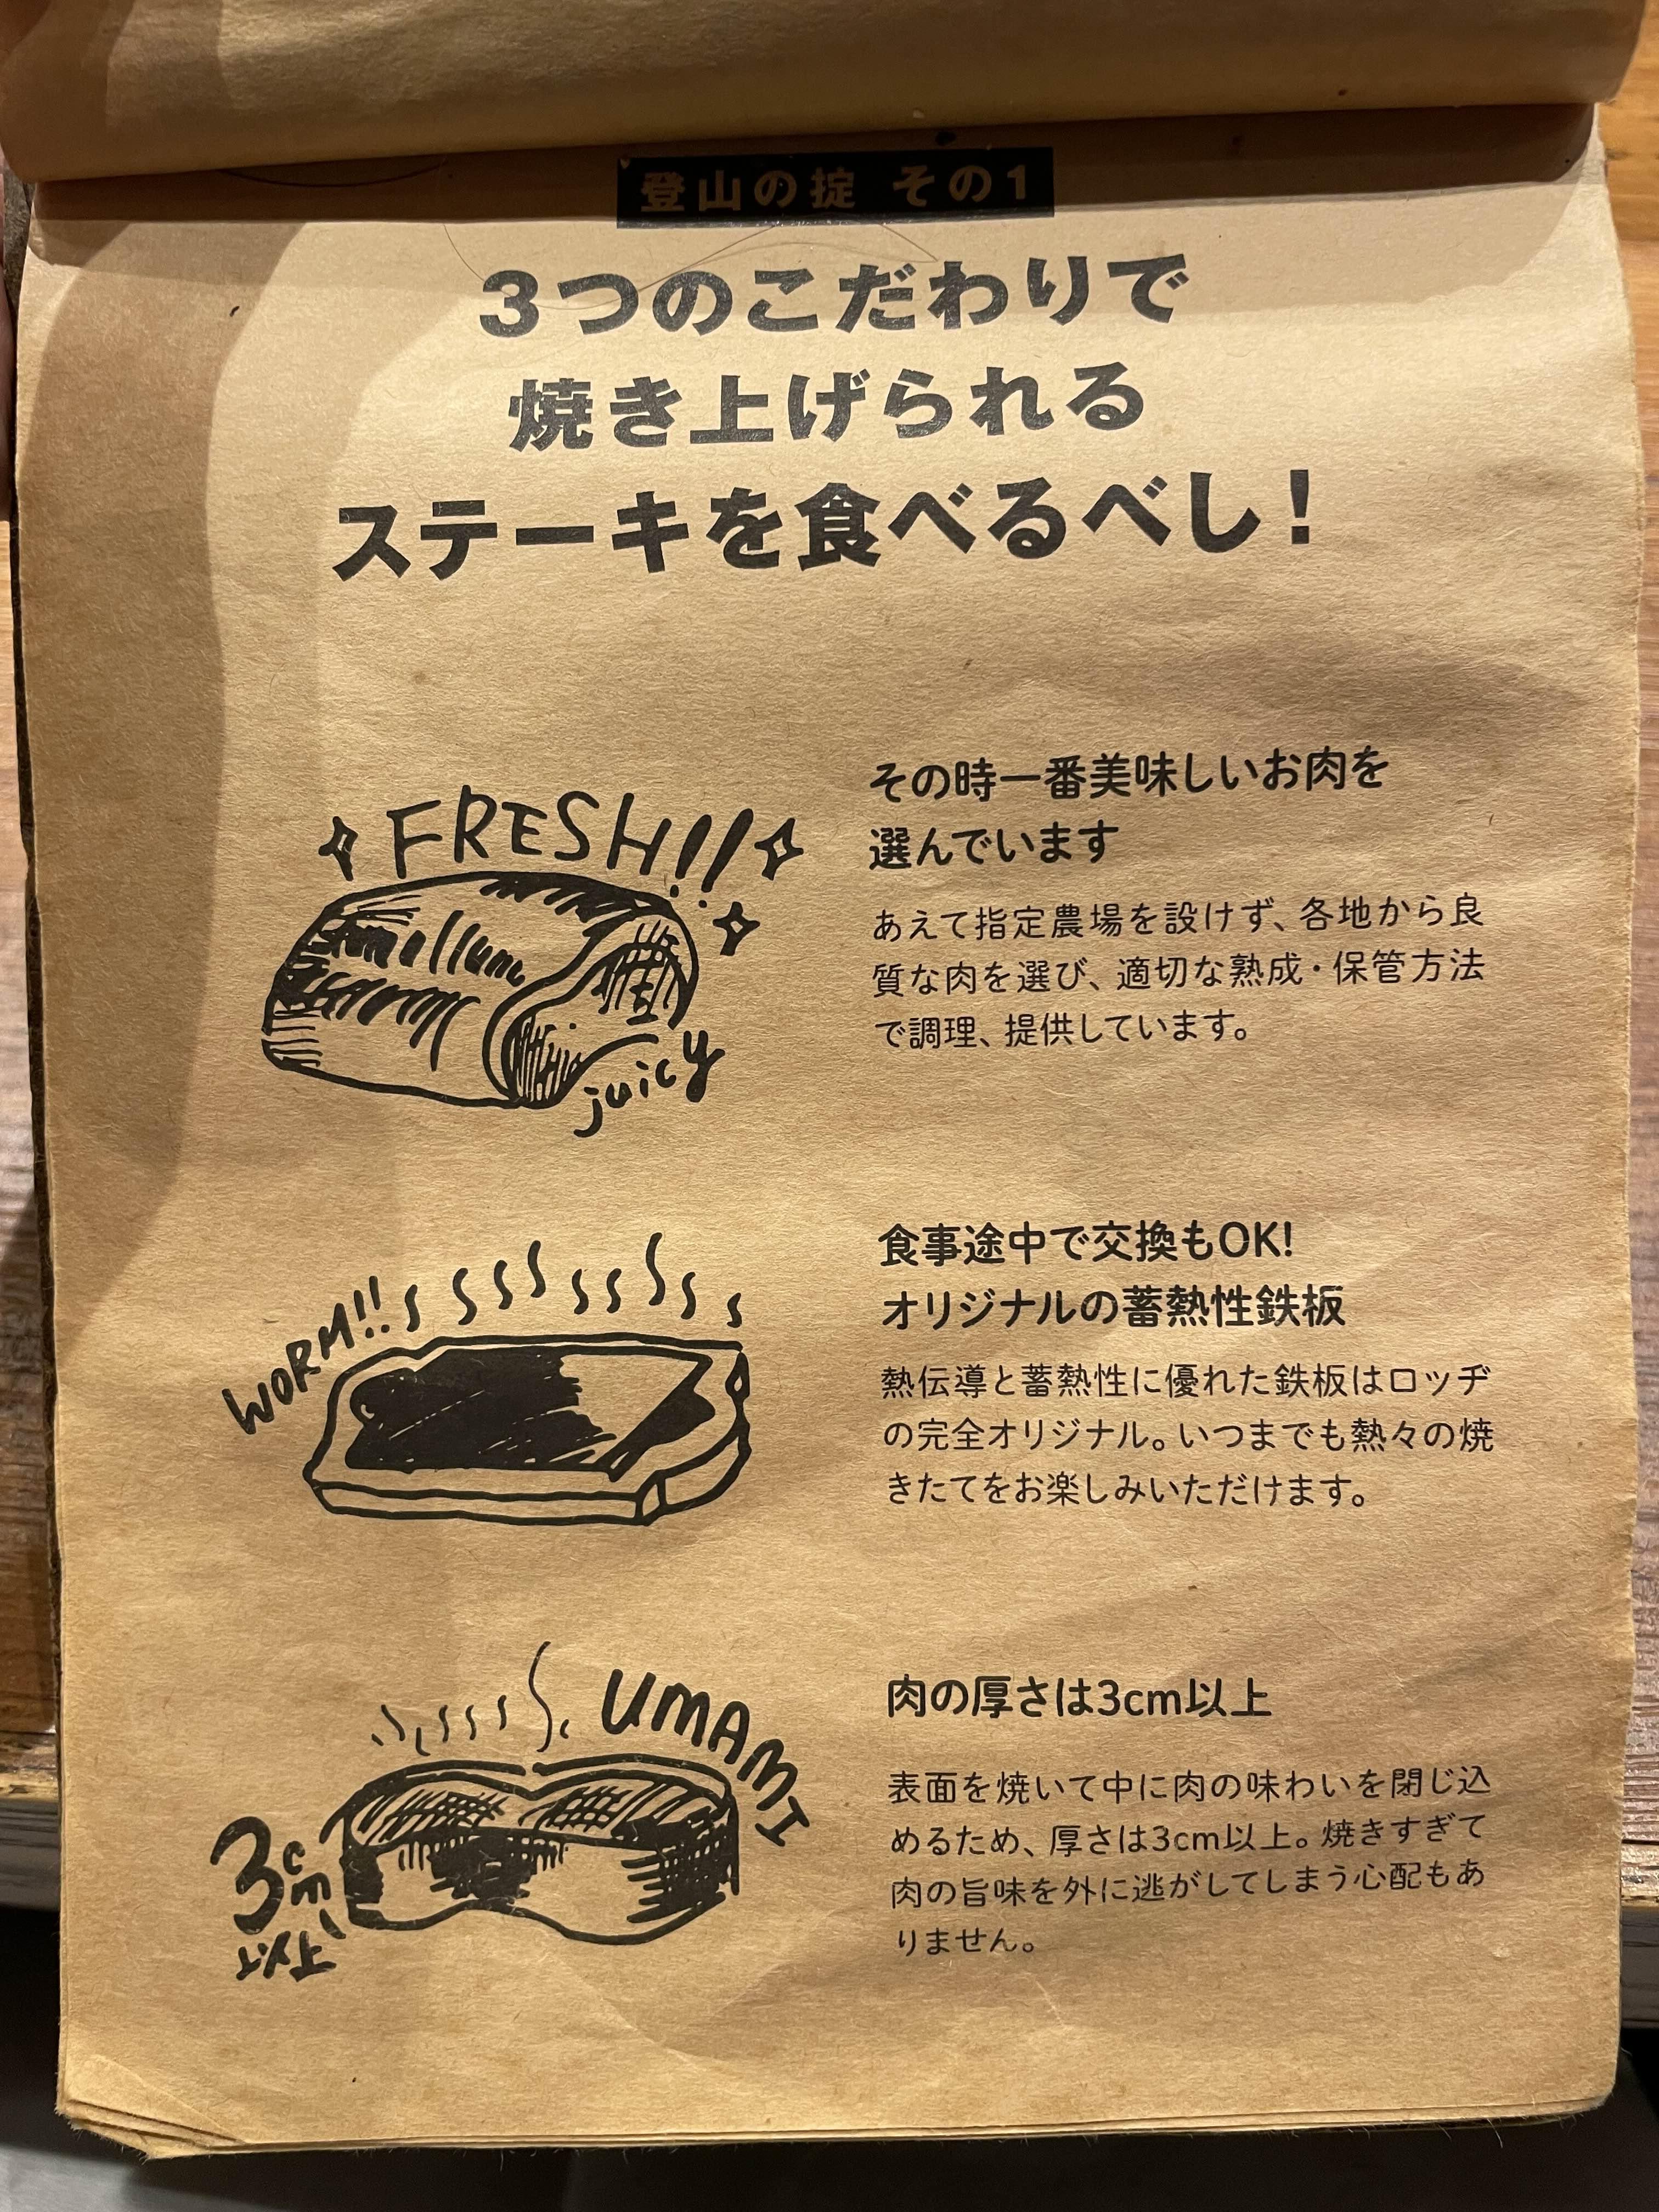 登山の掟 その1
3つのこだわりで
焼き上げられる
ステーキを食べるべし!
FRESH!!
juicy
その時一番美味しいお肉を
選んでいます
あえて指定農場を設けず、各地から良
質な肉を選び、適切な熟成・保管方法
で調理、提供しています。
WORM!!
食事途中で交換もOK!
オリジナルの蓄熱性鉄板
熱伝導と蓄熱性に優れた鉄板はロッヂ
の完全オリジナル。いつまでも熱々の焼
きたてをお楽しみいただけます。
UMAMI
3cm
以上
肉の厚さは3cm以上
表面を焼いて中に肉の味わいを閉じ込
めるため、厚さは3cm以上。焼きすぎて
肉の旨味を外に逃がしてしまう心配もあ
りません。